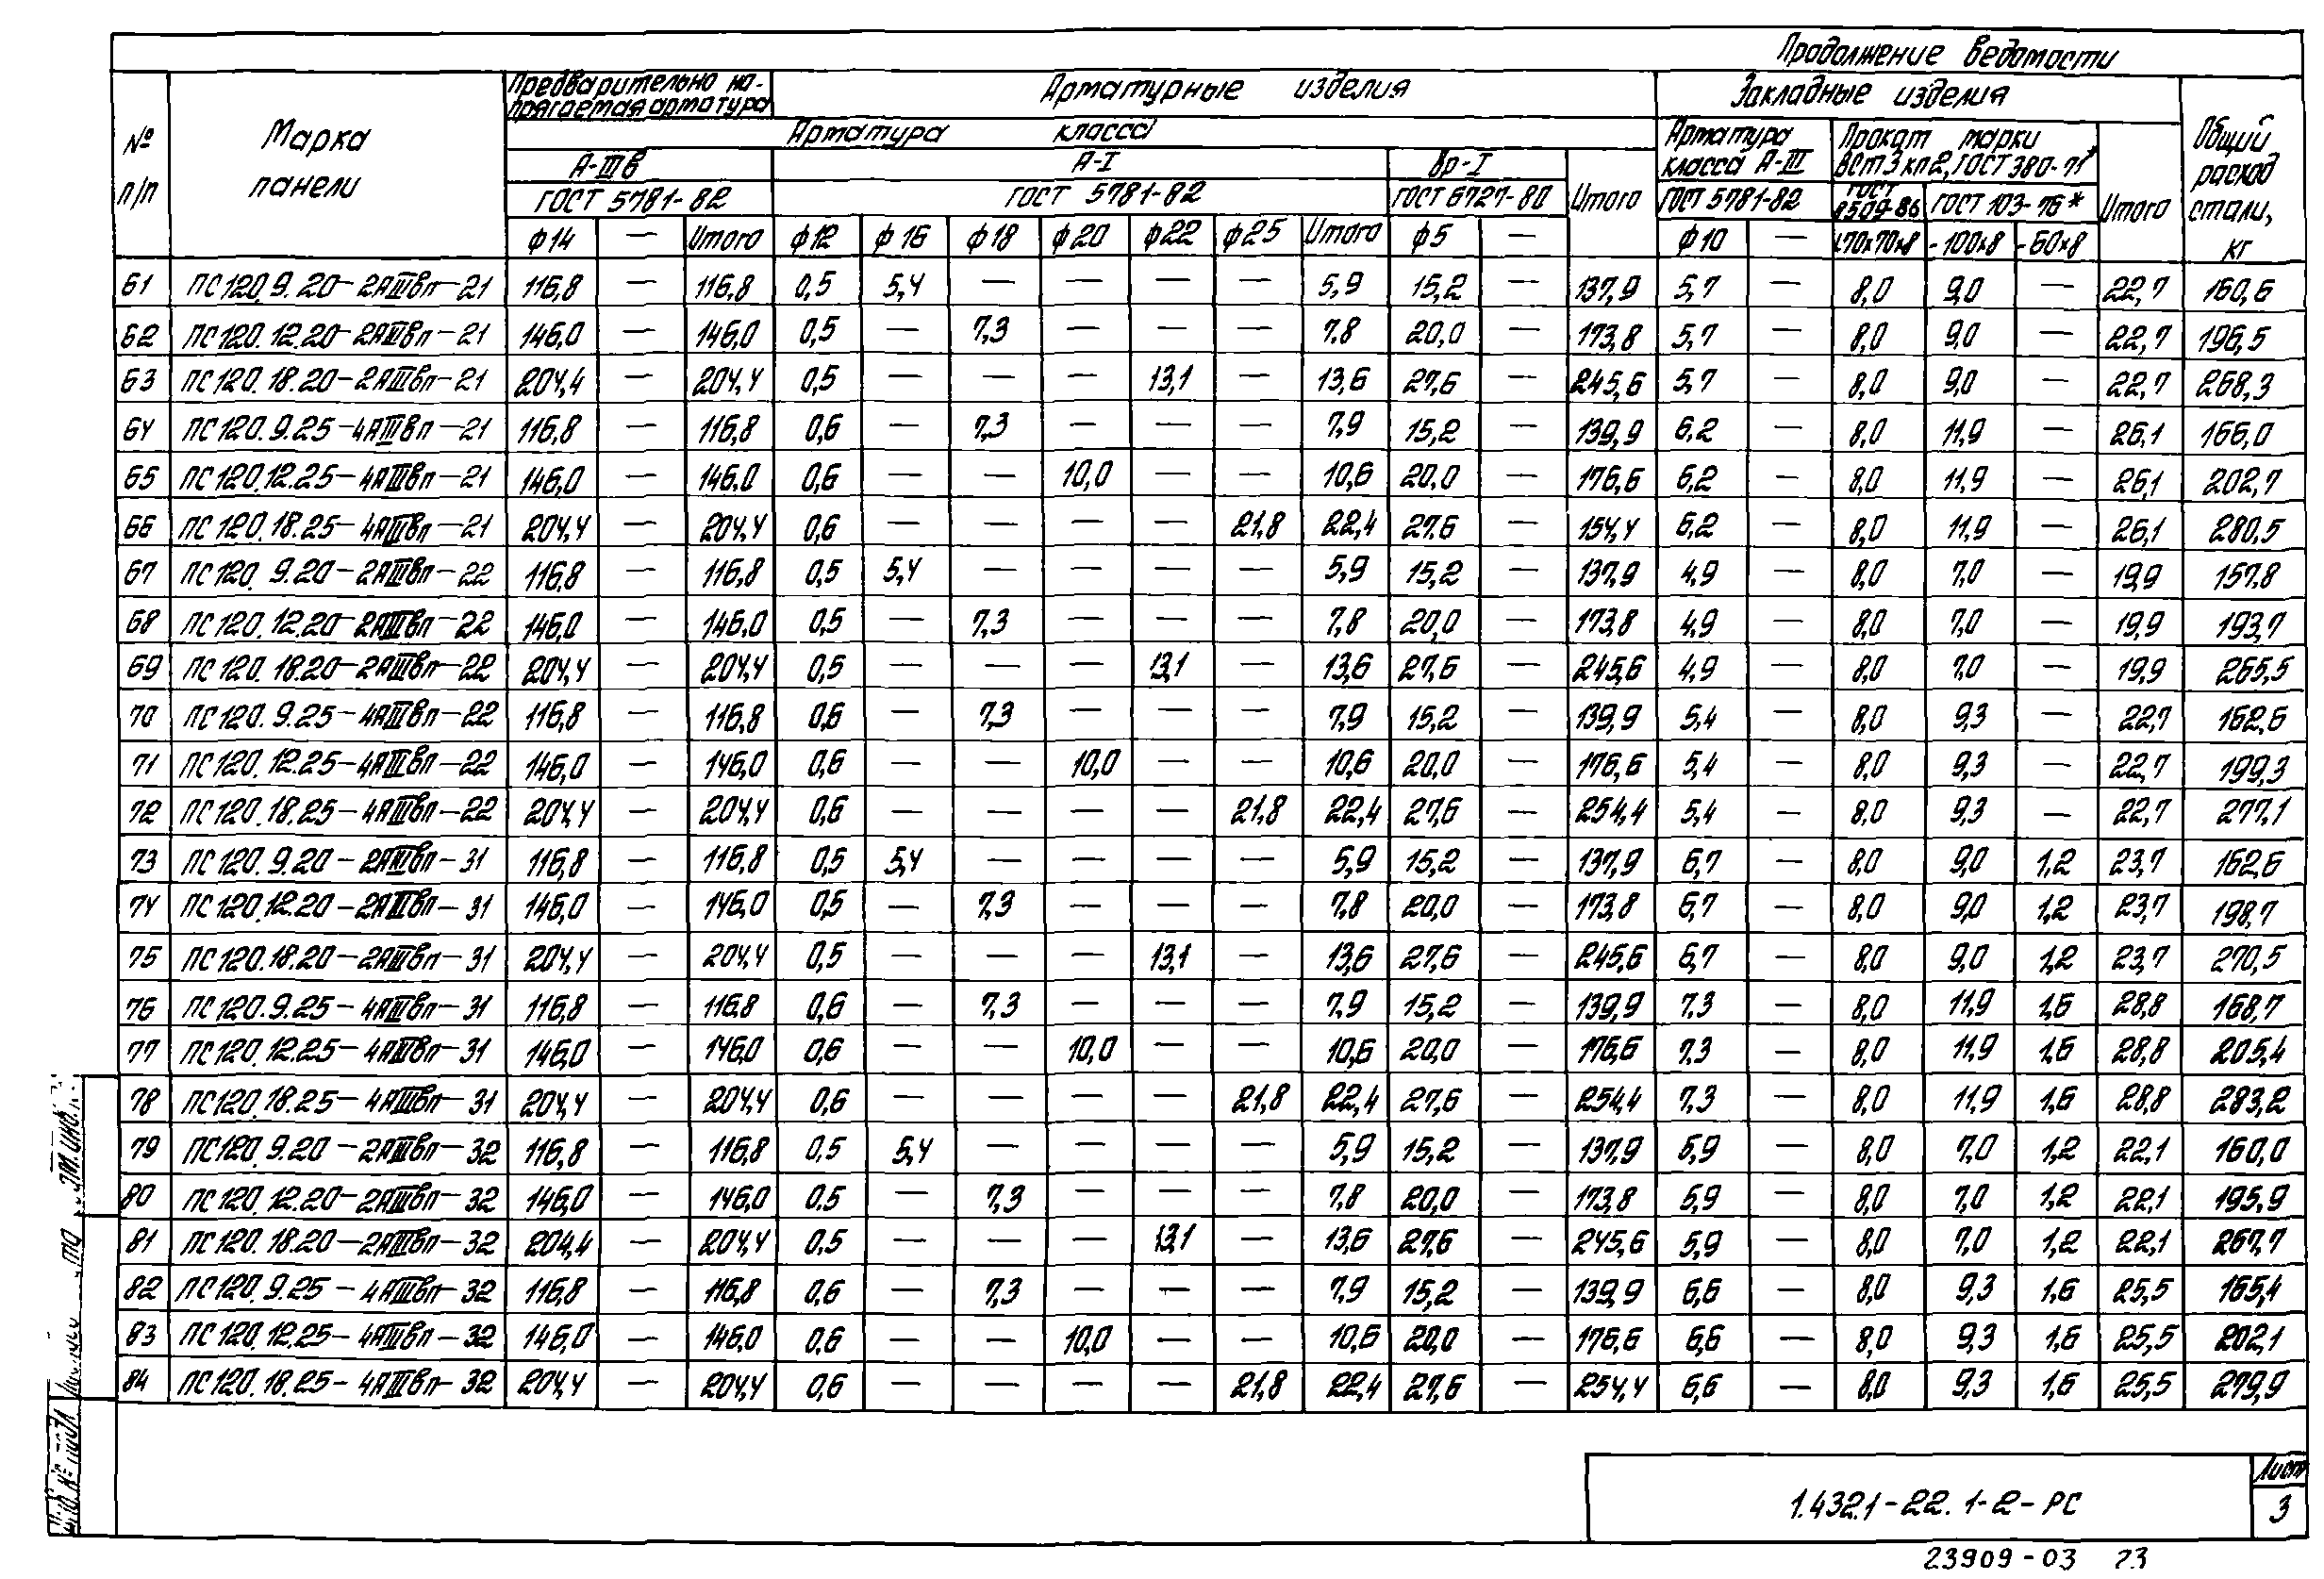 Продолжение ведомости
№ п/п
Марка панели
Предварительно напрягаемая арматура
Арматурные изделия
Закладные изделия
Общий расход стали, кг
Арматура класса
Арматура класса А-III
Прокат марки ВСт3кп2, ГОСТ 380-71*
А-IIIв
А-I
Вр-I
Итого
Итого
ГОСТ 5781-82
ГОСТ 5781-82
ГОСТ 6727-80
ГОСТ 5781-82
ГОСТ 8509-86
ГОСТ 103-76*
ф14 — Итого ф12 ф16 ф18 ф20 ф22 ф25 Итого ф5 — ф10 — ∟70х70х8 -100х8 -60х8
61 ПС120.9.20-2АIIIвп-21 116,8 — 116,8 0,5 5,4 — — — — 5,9 15,2 — 137,9 5,7 — 8,0 9,0 — 22,7 160,6
62 ПС120.12.20-2АIIIвп-21 146,0 — 146,0 0,5 — 7,3 — — — 7,8 20,0 — 173,8 5,7 — 8,0 9,0 — 22,7 196,5
63 ПС120.18.20-2АIIIвп-21 204,4 — 204,4 0,5 — — — 13,1 — 13,6 27,6 — 245,6 5,7 — 8,0 9,0 — 22,7 268,3
64 ПС120.9.25-4АIIIвп-21 116,8 — 116,8 0,6 — 7,3 — — — 7,9 15,2 — 139,9 6,2 — 8,0 11,9 — 26,1 166,0
65 ПС120.12.25-4АIIIвп-21 146,0 — 146,0 0,6 — — 10,0 — — 10,6 20,0 — 176,6 6,2 — 8,0 11,9 — 26,1 202,7
66 ПС120.18.25-4АIIIвп-21 204,4 — 204,4 0,6 — — — — 21,8 22,4 27,6 — 154,4 6,2 — 8,0 11,9 — 26,1 280,5
67 ПС120.9.20-2АIIIвп-22 116,8 — 116,8 0,5 5,4 — — — — 5,9 15,2 — 137,9 4,9 — 8,0 7,0 — 19,9 157,8
68 ПС120.12.20-2АIIIвп-22 146,0 — 146,0 0,5 — 7,3 — — — 7,8 20,0 — 173,8 4,9 — 8,0 7,0 — 19,9 193,7
69 ПС120.18.20-2АIIIвп-22 204,4 — 204,4 0,5 — — — 13,1 — 13,6 27,6 — 245,6 4,9 — 8,0 7,0 — 19,9 265,5
70 ПС120.9.25-4АIIIвп-22 116,8 — 116,8 0,6 — 7,3 — — — 7,9 15,2 — 139,9 5,4 — 8,0 9,3 — 22,7 162,6
71 ПС120.12.25-4АIIIвп-22 146,0 — 146,0 0,6 — — 10,0 — — 10,6 20,0 — 176,6 5,4 — 8,0 9,3 — 22,7 199,3
72 ПС120.18.25-4АIIIвп-22 204,4 — 204,4 0,6 — — — — 21,8 22,4 27,6 — 254,4 5,4 — 8,0 9,3 — 22,7 277,1
73 ПС120.9.20-2АIIIвп-31 116,8 — 116,8 0,5 5,4 — — — — 5,9 15,2 — 137,9 6,7 — 8,0 9,0 1,2 23,7 162,6
74 ПС120.12.20-2АIIIвп-31 146,0 — 146,0 0,5 — 7,3 — — — 7,8 20,0 — 173,8 6,7 — 8,0 9,0 1,2 23,7 198,7
75 ПС120.18.20-2АIIIвп-31 204,4 — 204,4 0,5 — — — 13,1 — 13,6 27,6 — 245,6 6,7 — 8,0 9,0 1,2 23,7 270,5
76 ПС120.9.25-4АIIIвп-31 116,8 — 116,8 0,6 — 7,3 — — — 7,9 15,2 — 139,9 7,3 — 8,0 11,9 1,6 28,8 168,7
77 ПС120.12.25-4АIIIвп-31 146,0 — 146,0 0,6 — — 10,0 — — 10,6 20,0 — 176,6 7,3 — 8,0 11,9 1,6 28,8 205,4
78 ПС120.18.25-4АIIIвп-31 204,4 — 204,4 0,6 — — — — 21,8 22,4 27,6 — 254,4 7,3 — 8,0 11,9 1,6 28,8 283,2
79 ПС120.9.20-2АIIIвп-32 116,8 — 116,8 0,5 5,4 — — — — 5,9 15,2 — 137,9 5,9 — 8,0 7,0 1,2 22,1 160,0
80 ПС120.12.20-2АIIIвп-32 146,0 — 146,0 0,5 — 7,3 — — — 7,8 20,0 — 173,8 5,9 — 8,0 7,0 1,2 22,1 195,9
81 ПС120.18.20-2АIIIвп-32 204,4 — 204,4 0,5 — — — 13,1 — 13,6 27,6 — 245,6 5,9 — 8,0 7,0 1,2 22,1 267,7
82 ПС120.9.25-4АIIIвп-32 116,8 — 116,8 0,6 — 7,3 — — — 7,9 15,2 — 139,9 6,6 — 8,0 9,3 1,6 25,5 165,4
83 ПС120.12.25-4АIIIвп-32 146,0 — 146,0 0,6 — — 10,0 — — 10,6 20,0 — 176,6 6,6 — 8,0 9,3 1,6 25,5 202,1
84 ПС120.18.25-4АIIIвп-32 204,4 — 204,4 0,6 — — — — 21,8 22,4 27,6 — 254,4 6,6 — 8,0 9,3 1,6 25,5 279,9
1.432.1-22.1-2-РС
Лист
3
23909-03 23